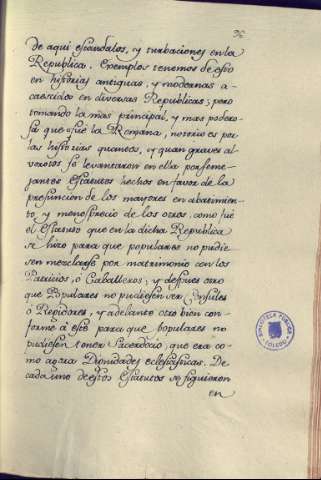 de aqui escandalos, y turbaciones en la
Republica. Exemplos tenemos de esto
en historias antiguas, y modernas a-
caescidos en diversas Republicas; pero
tomando la mas principal, y mas podero-
sa que fué la Romana, notorio es por
las historias quantos, y quan graves al-
vorotos se levantaron en ella por seme-
jantes Estatutos hechos en favor de la
presuncion de los mayores en abatimien-
to, y menosprecio de los otros. como fué
el Estatuto que en la dicha Republica
se hizo para que populares no pudie-
sen mezclarse por matrimonio con los
Patricios, ó Caballeros; y despues otro
que Populares no pudiesen ser Consules
ó Regidores, y adelante otro bien con-
forme á esto para que populares no
pudiesen tener Sacerdocio, que era co-
mo agora Dignidades eclesiasticas. De
cada uno de estos Estatutos se siguieron
en
BIBLIOTECA PUBLICA
TOLEDO